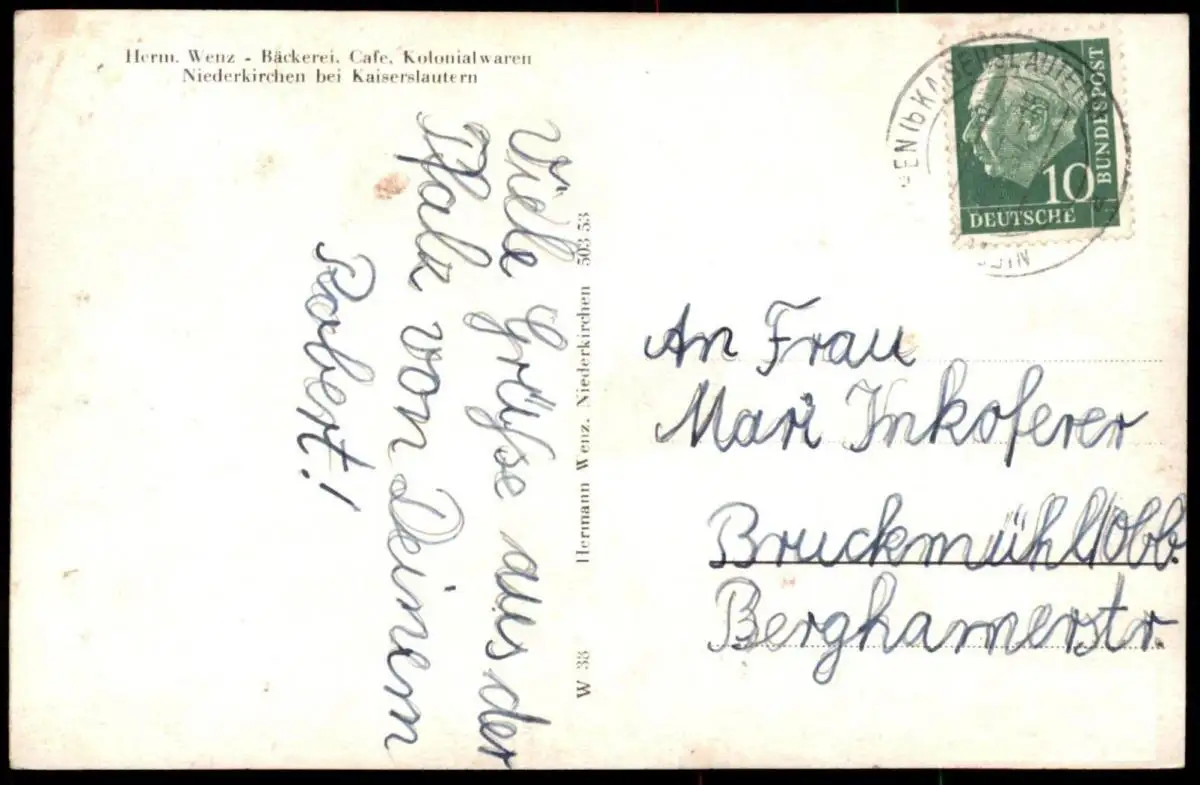 Herm. Wenz - Bäckerei, Cafe, Kolonialwaren
Niederkirchen bei Kaiserslautern
Viele Grüße aus der
Pfalz von Deinem
Robert!
W 38 Hermann Wenz, Niederkirchen 503 53
KAISERSLAUTERN
BUNDESPOST
10
DEUTSCHE
An Frau
Mari Inkoferer
Bruckmühl/Obb.
Berghamerstr.